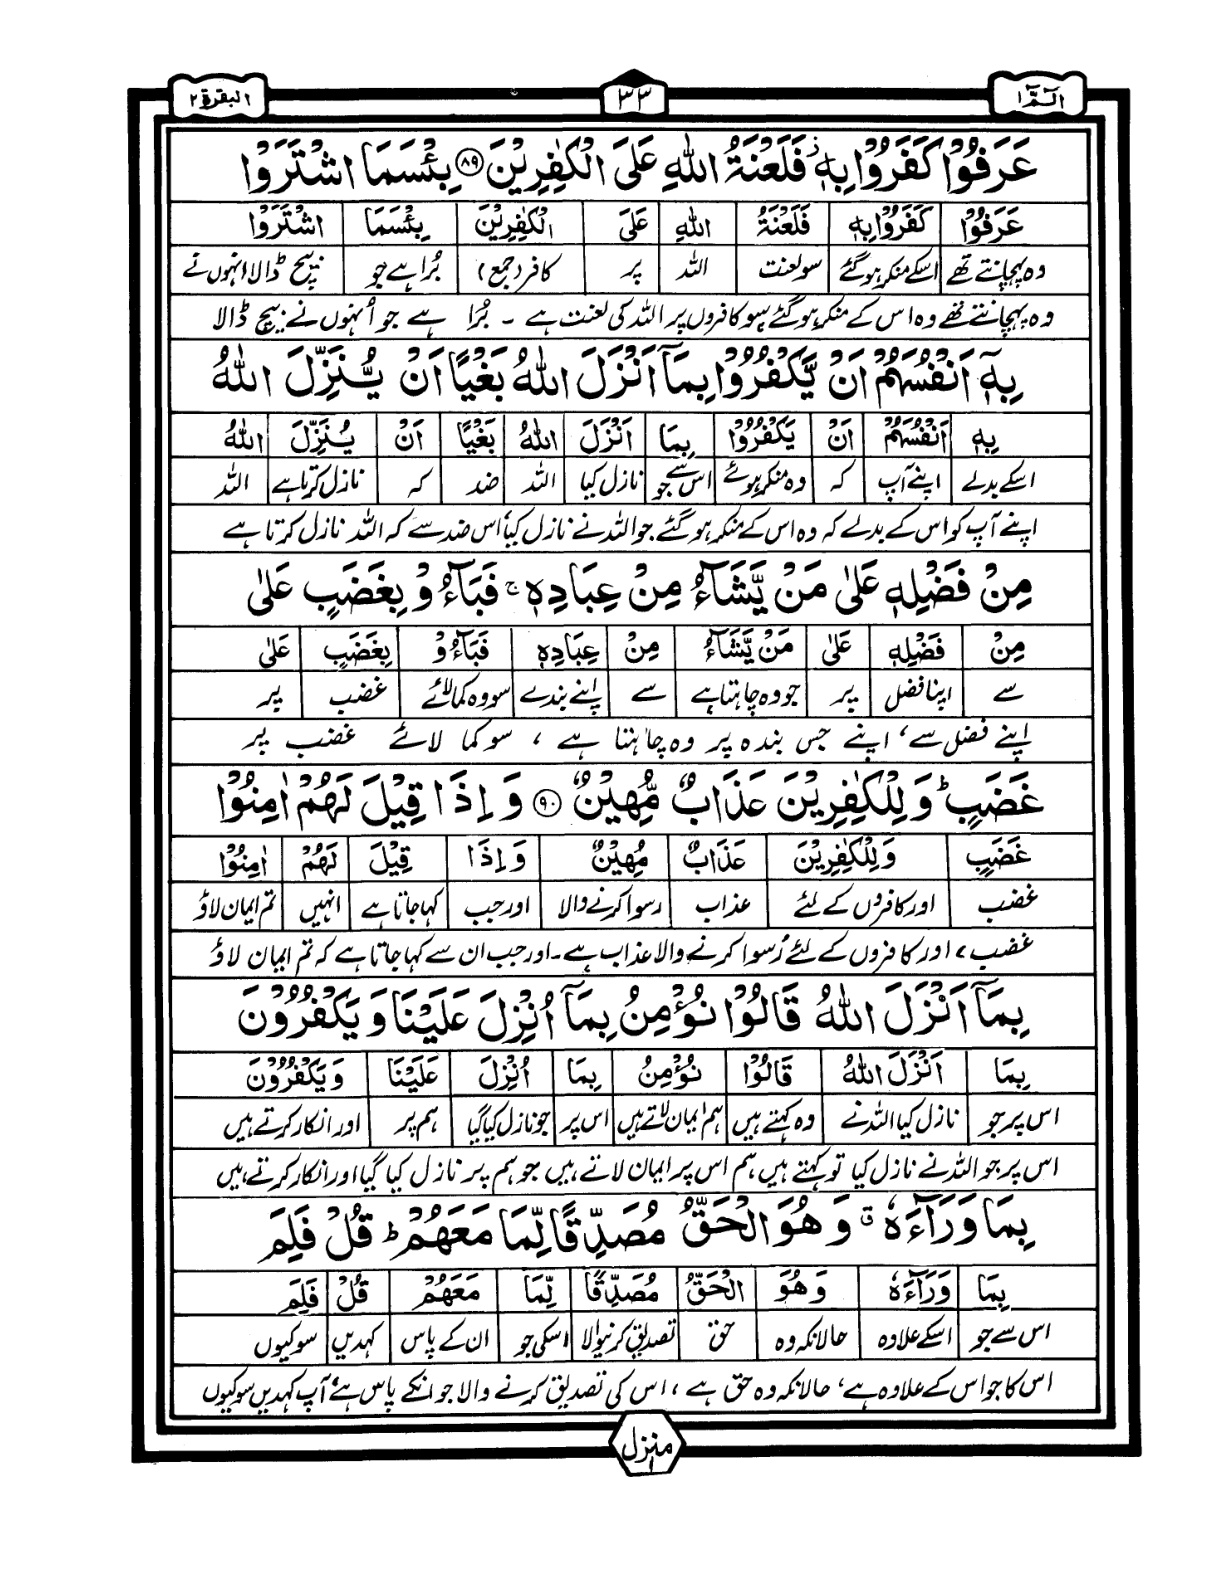 الٓمّٓ ۱ ۳۳ البقرة ۲
عَرَفُوْا كَفَرُوْا بِهٖ ز فَلَعْنَةُ اللهِ عَلَى الْكٰفِرِيْنَ ﴿۸۹﴾ بِئْسَمَا اشْتَرَوْا
عَرَفُوْا كَفَرُوْا بِهٖ فَلَعْنَةُ اللهِ عَلَى الْكٰفِرِيْنَ بِئْسَمَا اشْتَرَوْا
وہ پہچانتے تھے اسکے منکر ہوگئے سو لعنت اللہ پر کافر (جمع) بُرا ہے جو بیچ ڈالا انہوں نے
وہ پہچانتے تھے وہ اس کے منکر ہوگئے سو کافروں پر اللہ کی لعنت ہے ۔ بُرا ہے جو اُنہوں نے بیچ ڈالا
بِهٖٓ اَنْفُسَهُمْ اَنْ يَّكْفُرُوْا بِمَآ اَنْزَلَ اللهُ بَغْيًا اَنْ يُّنَزِّلَ اللهُ
بِهٖ اَنْفُسَهُمْ اَنْ يَكْفُرُوْا بِمَا اَنْزَلَ اللهُ بَغْيًا اَنْ يُنَزِّلَ اللهُ
اسکے بدلے اپنے آپ کہ وہ منکر ہوئے اس سے جو نازل کیا اللہ ضد کہ نازل کرتا ہے اللہ
اپنے آپ کو اس کے بدلے کہ وہ اس کے منکر ہو گئے جو اللہ نے نازل کیا، اس ضد سے کہ اللہ نازل کرتا ہے
مِنْ فَضْلِهٖ عَلٰى مَنْ يَّشَآءُ مِنْ عِبَادِهٖ ج فَبَآءُوْ بِغَضَبٍ عَلٰى
مِنْ فَضْلِهٖ عَلٰى مَنْ يَّشَآءُ مِنْ عِبَادِهٖ فَبَآءُوْ بِغَضَبٍ عَلٰى
سے اپنا فضل پر جو وہ چاہتا ہے سے اپنے بندے سو وہ کما لائے غضب پر
اپنے فضل سے، اپنے جس بندہ پر وہ چاہتا ہے ، سو کما لائے غضب پر
غَضَبٍ ط وَلِلْكٰفِرِيْنَ عَذَابٌ مُّهِيْنٌ ﴿۹۰﴾ وَ اِذَا قِيْلَ لَهُمْ اٰمِنُوْا
غَضَبٍ وَلِلْكٰفِرِيْنَ عَذَابٌ مُهِيْنٌ وَ اِذَا قِيْلَ لَهُمْ اٰمِنُوْا
غضب اور کافروں کے لئے عذاب رسوا کرنے والا اور جب کہا جاتا ہے انہیں تم ایمان لاؤ
غضب، اور کافروں کے لئے رُسوا کرنے والا عذاب ہے۔ اور جب ان سے کہا جاتا ہے کہ تم ایمان لاؤ
بِمَآ اَنْزَلَ اللهُ قَالُوْا نُؤْمِنُ بِمَآ اُنْزِلَ عَلَيْنَا وَ يَكْفُرُوْنَ
بِمَا اَنْزَلَ اللهُ قَالُوْا نُؤْمِنُ بِمَا اُنْزِلَ عَلَيْنَا وَيَكْفُرُوْنَ
اس پر جو نازل کیا اللہ نے وہ کہتے ہیں ہم ایمان لاتے ہیں اس پر جو نازل کیا گیا ہم پر اور انکار کرتے ہیں
اس پر جو اللہ نے نازل کیا تو کہتے ہیں ہم اس پر ایمان لاتے ہیں جو ہم پر نازل کیا گیا اور انکار کرتے ہیں
بِمَا وَرَآءَهٗ ق وَ هُوَ الْحَقُّ مُصَدِّقًا لِّمَا مَعَهُمْ ط قُلْ فَلِمَ
بِمَا وَرَآءَهٗ وَهُوَ الْحَقُّ مُصَدِّقًا لِّمَا مَعَهُمْ قُلْ فَلِمَ
اس سے جو اسکے علاوہ حالانکہ وہ حق تصدیق کرنیوالا اسکی جو ان کے پاس کہدیں سو کیوں
اس کا جو اس کے علاوہ ہے، حالانکہ وہ حق ہے ، اس کی تصدیق کرنے والا جو انکے پاس ہے، آپ کہدیں سو کیوں
منزل ۱